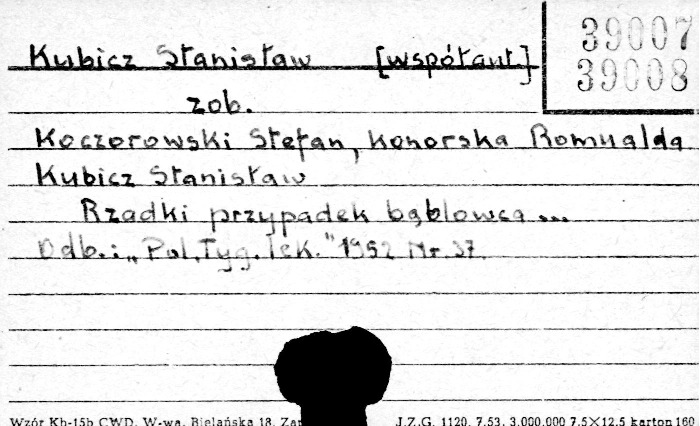 39007
39008
Kubicz Stanisław [współaut]
zob.
Koczorowski Stefan, Konorska Romualda
Kubicz Stanisław
Rzadki przypadek bąblowca...
Odb.: „Pol. Tyg. lek." 1952 Nr. 37.
Wzór Kb-15b CWD. W-wa, Bielańska 18. J.Z.G. 1120. 7.53. 3.000.000 7.5×12.5 karton 160